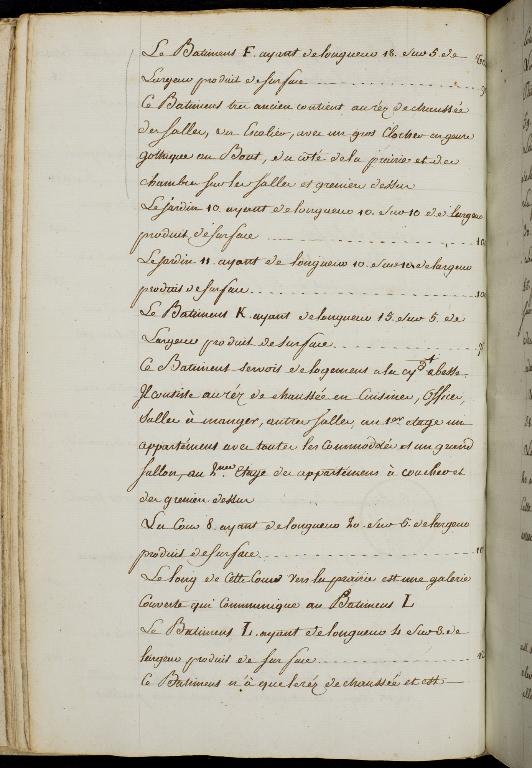 Le Batiment F. ayant de longueur 18. sur 5. de
Largeur produit de surface
Ce Batiment tres ancien contient au réz de chaussée
des salles, un Escalier, avec un gros Clocher en genre
gothique au Bout, du côté de la prairie et des
chambres sur les salles et greniers dessus
Le jardin 10. ayant de longueur 10. sur 10 de largeur
produit de surface
Le jardin 11. ayant de longueur 10. sur 10 de largeur
produit de surface
Le Batiment K. ayant de longueur 15. sur 5. de
Largeur produit de surface
Ce Batiment servois de logement a la cydt abesse
Il consiste au réz de chaussée en Cuisines, Offices,
Salles à manger, autres salles, au 1er etage un
appartement avec toutes les Commodités et un grand
sallon, au 2me Etage des appartemens à coucher et
des greniers dessus
La Cour 8. ayant de longueur 20. sur 5. de largeur
produit de surface
Le long de Cette Cour vers la prairie est une galerie
Couverte qui Communique au Batiment L
Le Batiment L. ayant de longueur 4. sur 3. de
largeur produit de surface
Ce Batiment n'a que le réz de chaussée et est